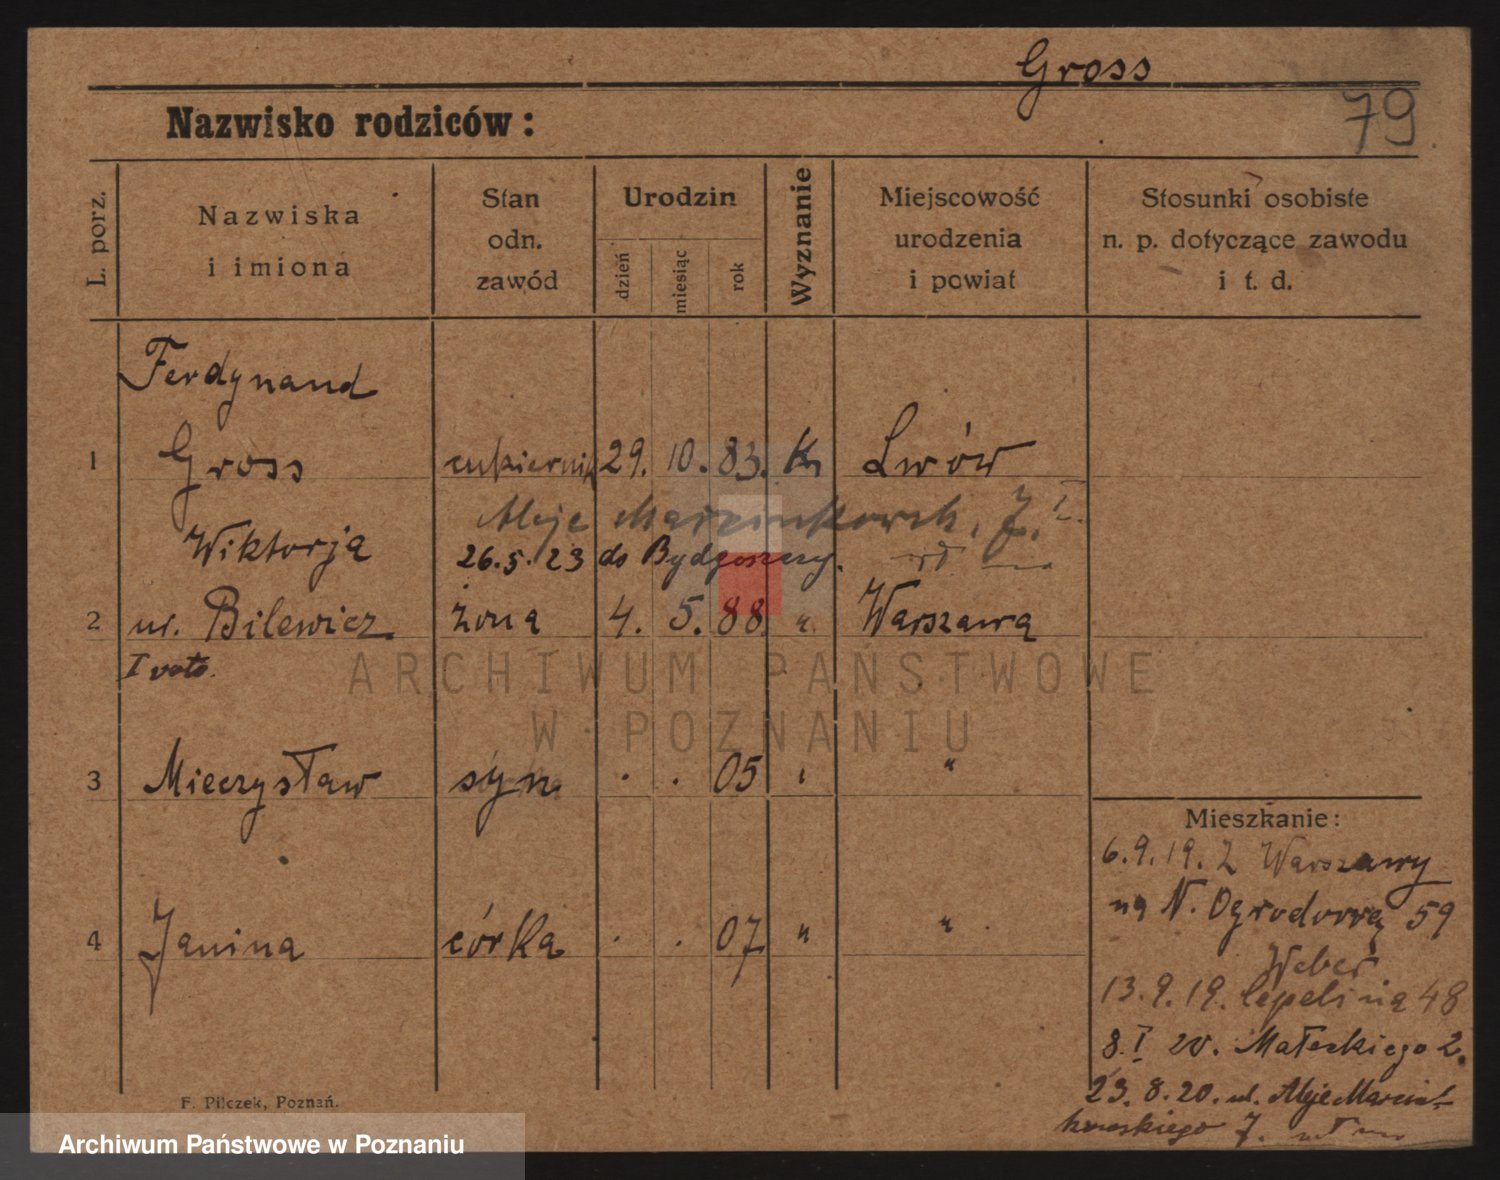 Gross
79
Nazwisko rodziców:
L. porz.
Nazwiska i imiona
Stan odn. zawód
Urodzin
dzień
miesiąc
rok
Wyznanie
Miejscowość urodzenia i powiat
Stosunki osobiste n. p. dotyczące zawodu i t. d.
Ferdynand
1 Gross cukiernik 29. 10. 83. K Lwów
Aleje Marcinkowsk. 7. I.
Wiktorja
26.5.23 do Bydgoszczy.
2 ur. Bilewicz żona 4. 5. 88 " Warszawa
I voto.
ARCHIWUM PAŃSTWOWE
W POZNANIU
3 Mieczysław syn . . 05 " "
4 Janina córka . . 07 " "
Mieszkanie:
6.9.19. Z Warszawy
na N. Ogrodową 59
Weber
13.9.19. 48
8. I 20. Małeckiego 2.
23.8.20. ul. Aleje Marcin-
kowskiego 7.
F. Pilczek, Poznań.
Archiwum Państwowe w Poznaniu